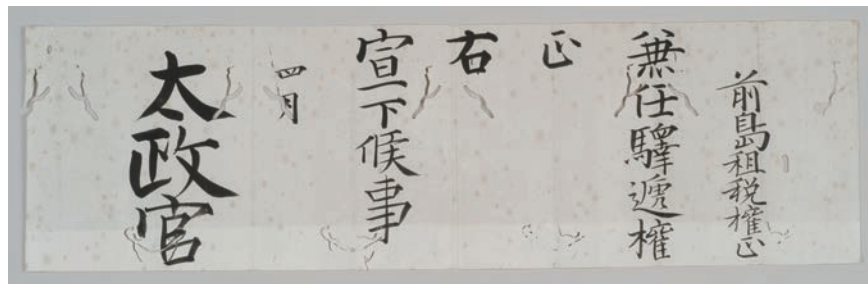 前島租税権正
兼任驛遞権
正
右
宣下候事
四月
太政官